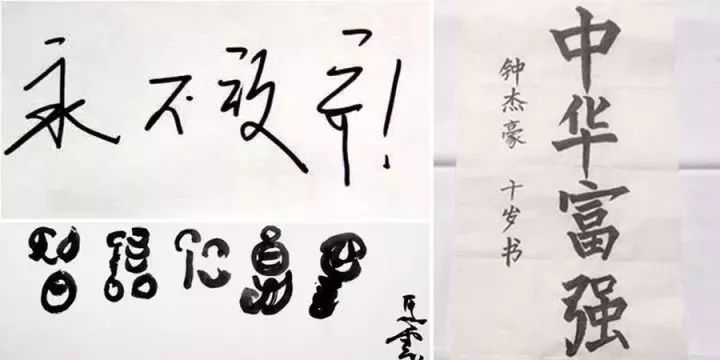 永不放弃!
马雲
中华富强
钟杰豪 十岁书